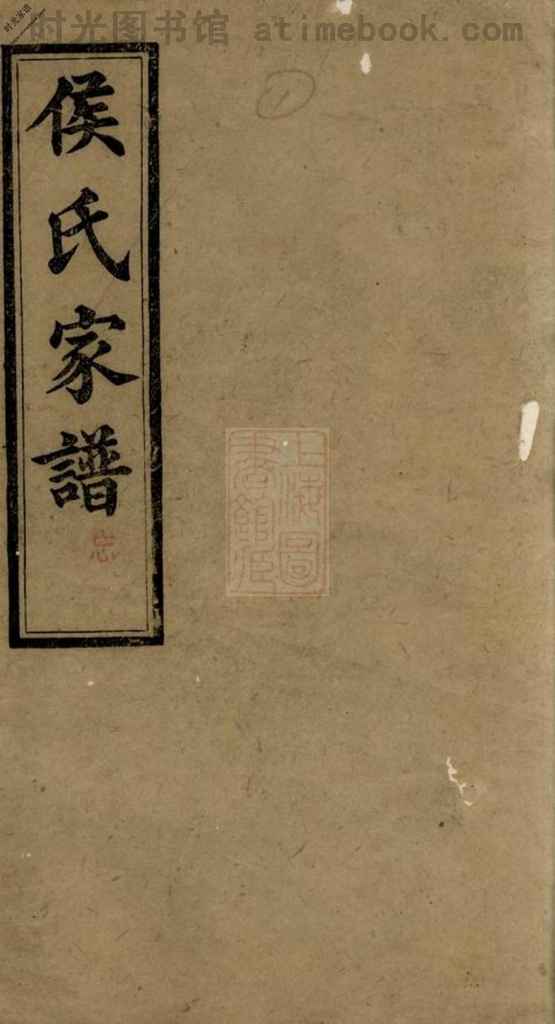 时光图书馆 atimebook.com
时光家谱
侯氏家譜
忠
上海圖
書館藏